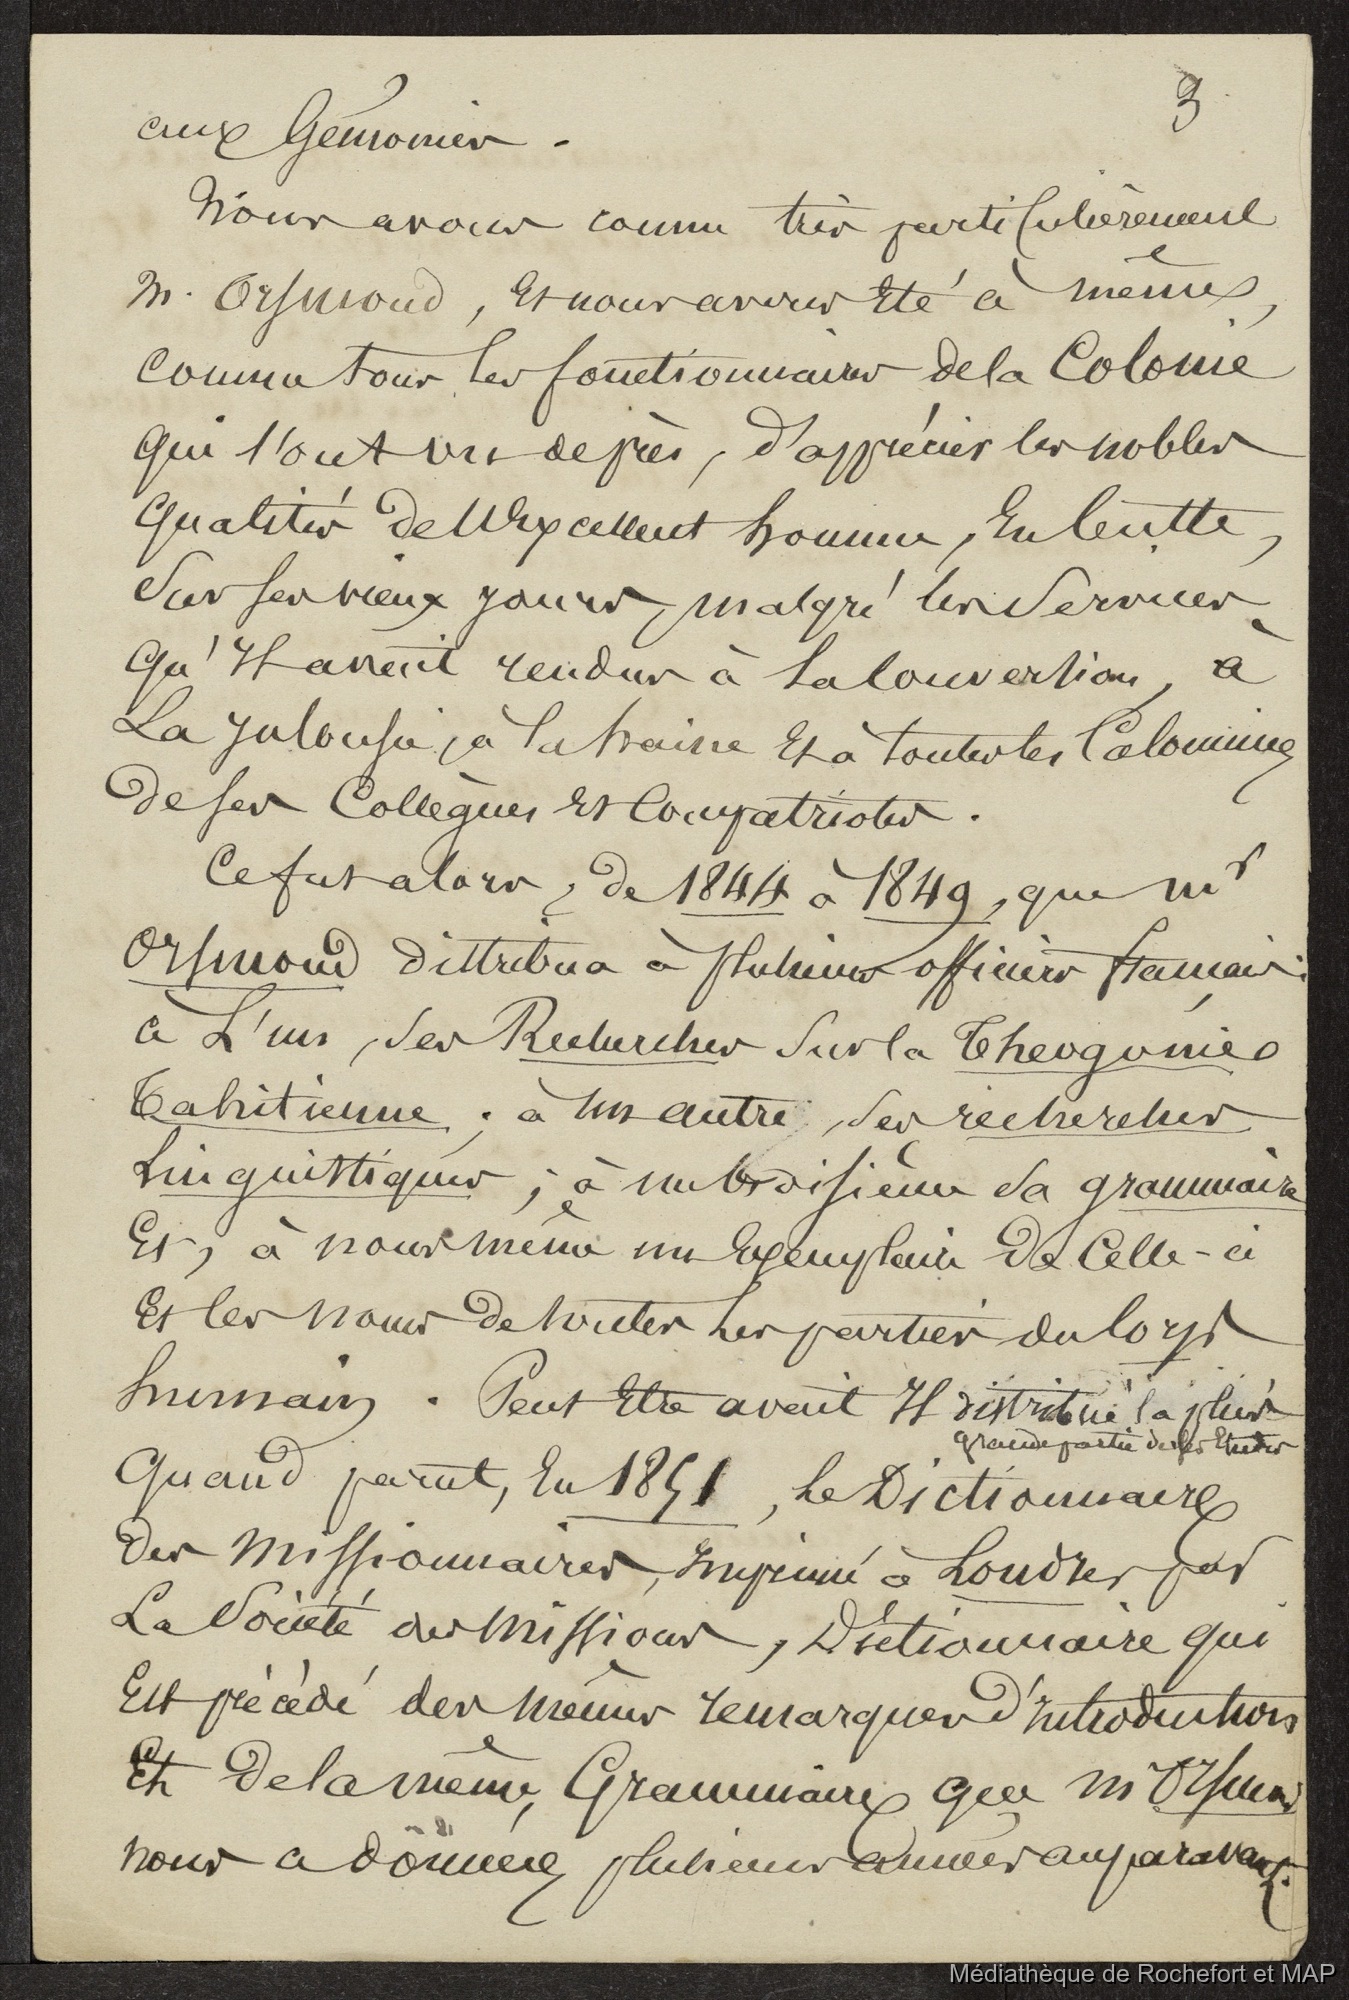 3
aux Gémonies.
Nous avons connu très particulièrement
M. Orsmond, Et nous avons Eté à même,
comme tous les fonctionnaires de la Colonie
qui l'ont vu de près, d'apprécier les nobles
qualités de l'Excellent homme, En butte,
Sur ses vieux jours, malgré les Services
qu'Il avait rendus à la Conversion, à
La jalousie, à la haine Et à toutes les Calomnies
de ses Collègues Et Compatriotes.
Ce fut alors, de 1844 à 1849, que Mr
Orsmond distribua à plusieurs officiers français:
à L'un, Ses Recherches Sur la Théogonie
Tahitienne; à un autre, Ses recherches
Linguistiques; à un troisième Sa grammaire
Et, à nous même un Exemplaire de Celle-ci
Et les noms de toutes les parties du Corps
humain. Peut Etre avait Il distribué la plus
grande partie de ses Etudes
Quand parut, En 1851, le Dictionnaire
des Missionnaires, Imprimé à Londres par
La Société des Missions, Dictionnaire qui
Est précédé des mêmes remarques d'Introduction
Et de la même Grammaire que Mr Orsmond
nous a donnée plusieurs années auparavant.
Médiathèque de Rochefort et MAP